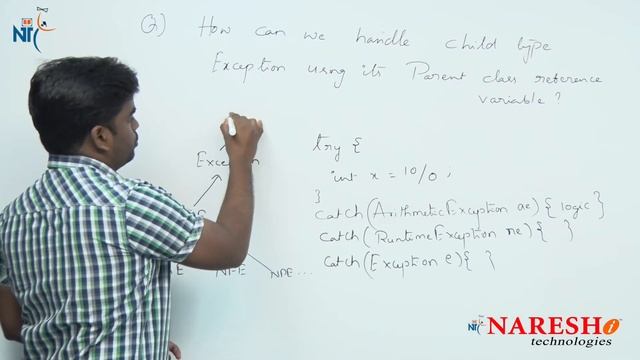 NTC
Q) How can we handle child type
Exception using its Parent class reference
variable ?
Exception
try {
int x = 10/0 ;
}
catch(ArithmeticException ae) { logic }
catch(RuntimeException re) { }
catch(Exception e) { }
NPE ...
NARESH i
technologies